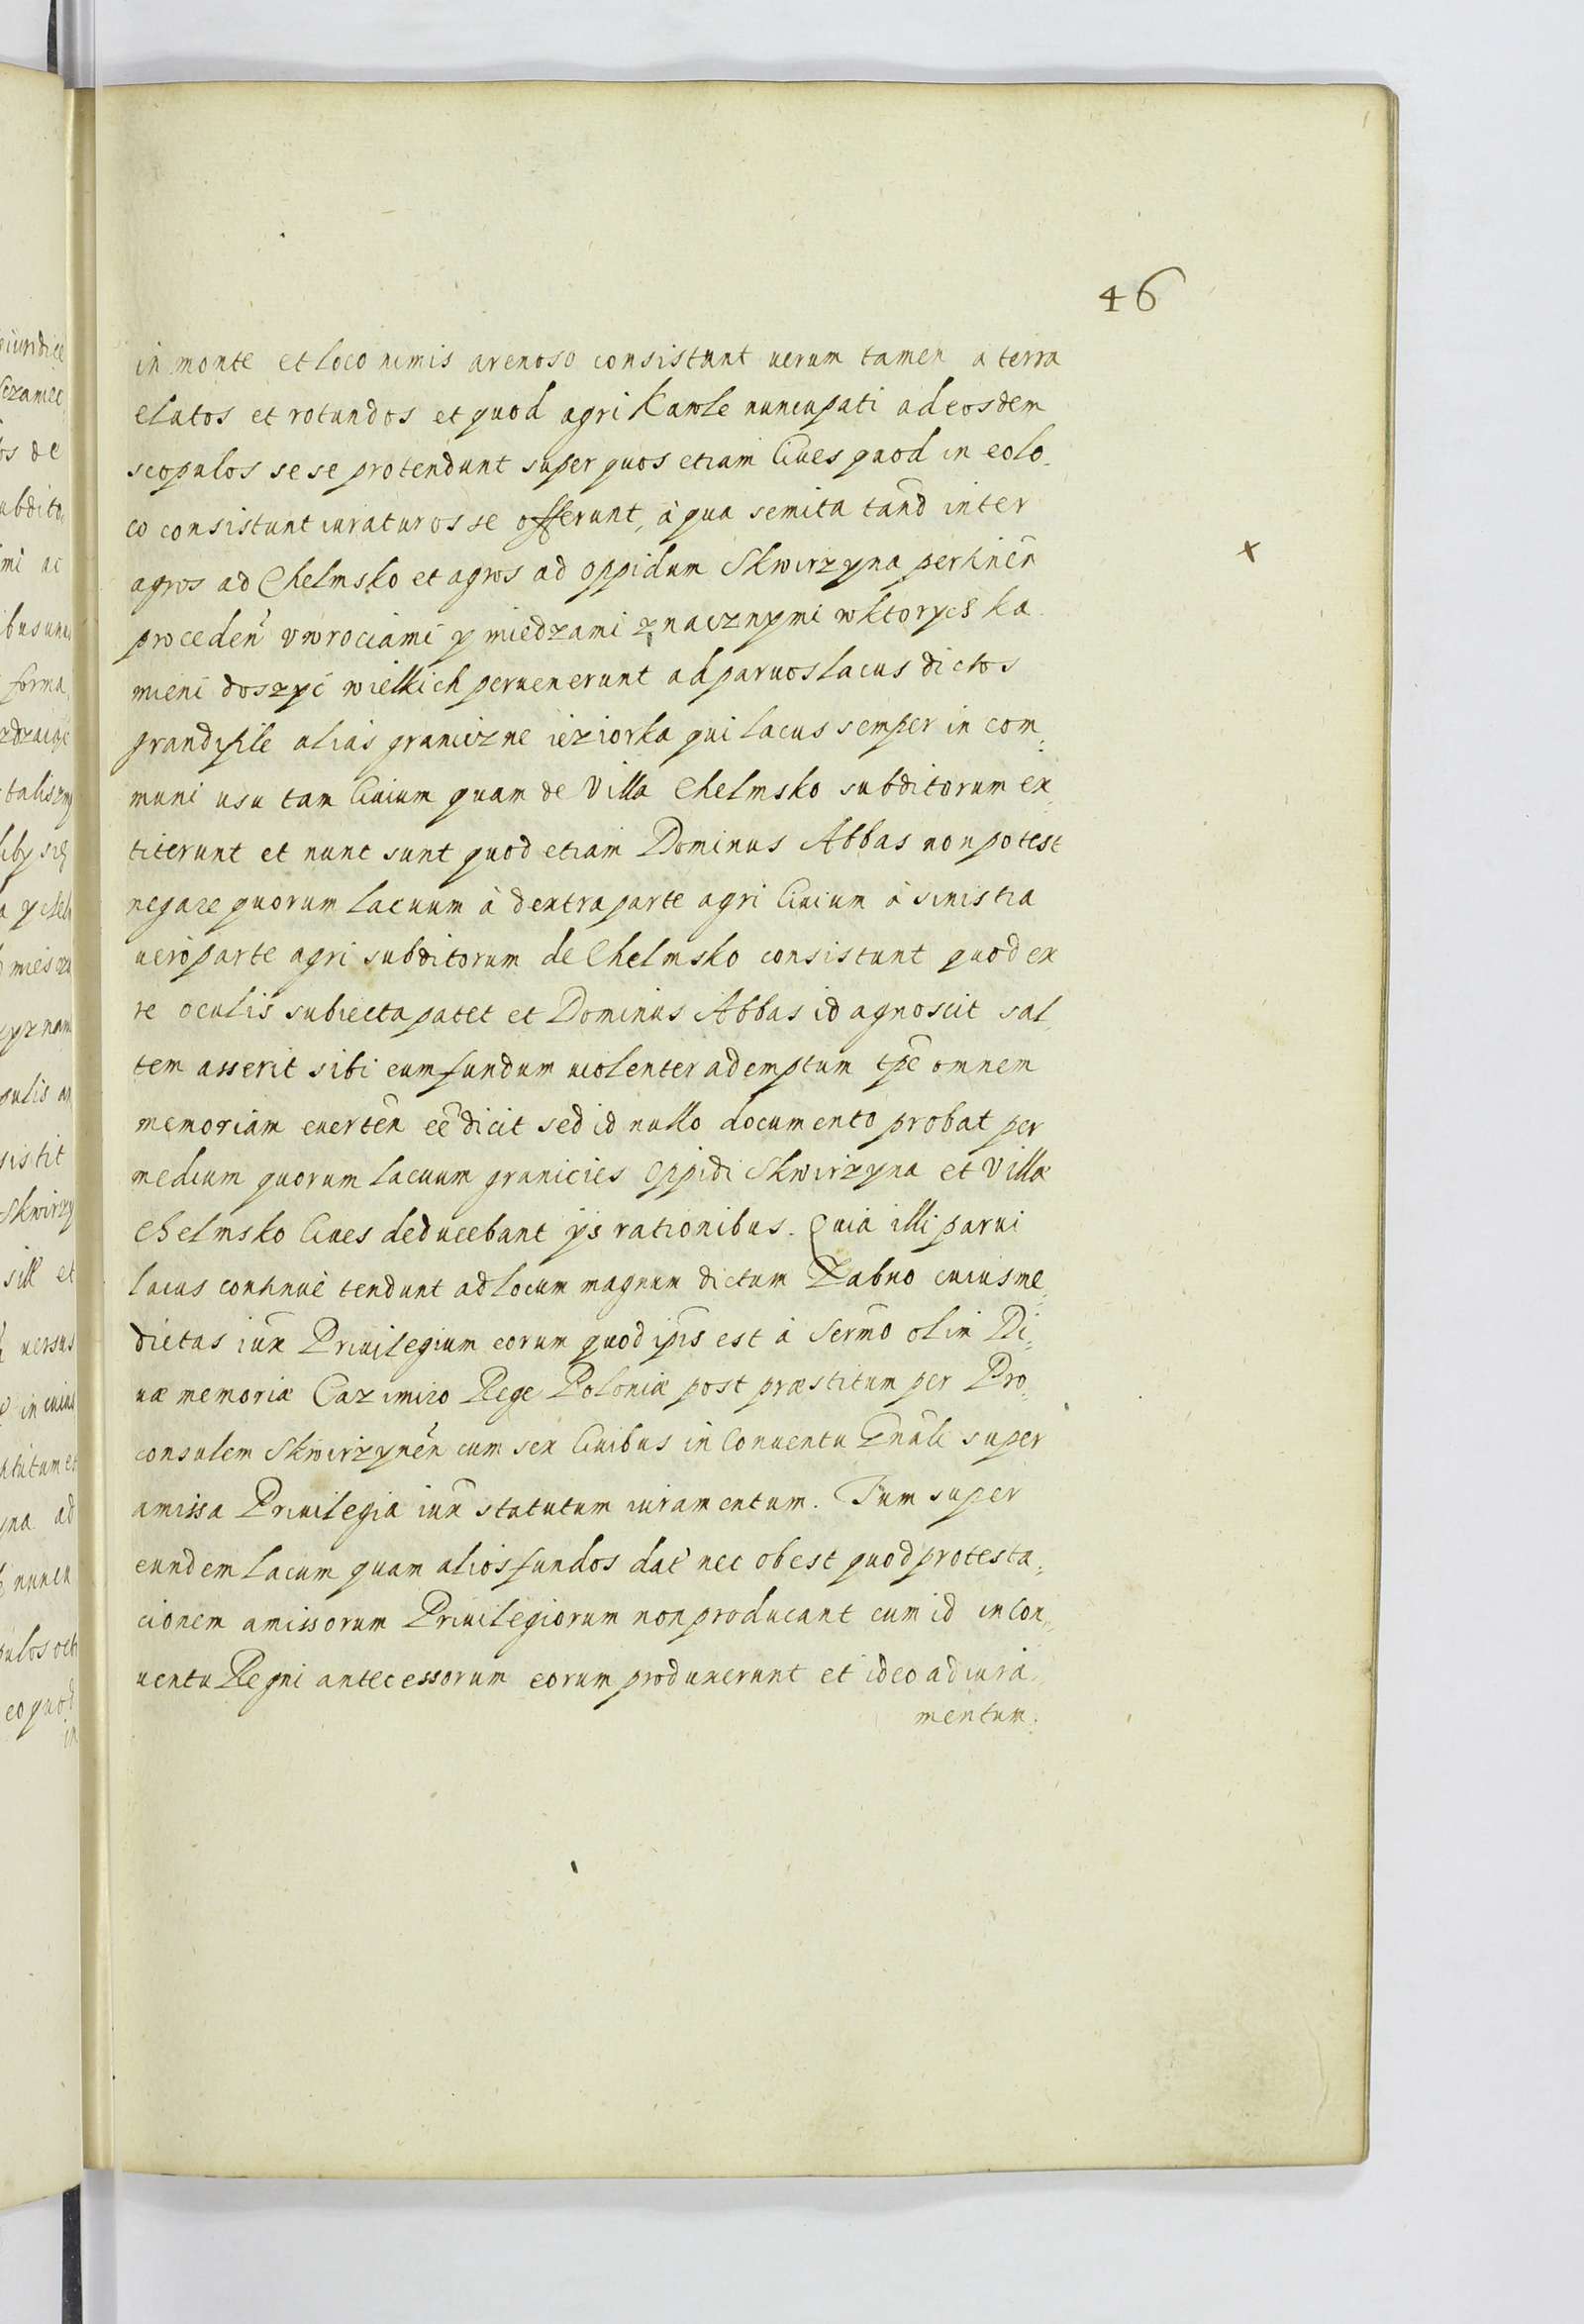 46
in monte et loco nimis arenoso consistunt uerum tamen a terra
elatos et rotundos et quod agri Kawle nuncupati ad eosdem
scopulos sese protendunt super quos etiam Ciues quod in eo lo-
co consistunt iuraturos se offerunt, à qua semita tand̃ inter
agros ad Chelmsko et agros ad oppidum Skwirzyna pertineñ
procedeñ vwrociami y miedzami znacznymi wktorych ka
mieni doszyć wielkich peruenerunt ad paruos lacus dictos
alias graniczne ieziorka qui lacus semper in com:
muni usu tam Ciuium quam de Villa Chelmsko subditorum ex:
titerunt et nunc sunt quod etiam Dominus Abbas non potest
negare quorum lacuum à dextra parte agri Ciuium à sinistra
uero parte agri subditorum de Chelmsko consistunt quod ex
re oculis subiecta patet et Dominus Abbas id agnoscit sal
tem asserit sibi eum fundum uiolenter ademptum tp̃e omnem
memoriam euerteñ eẽ dicit sed id nullo documento probat per
medium quorum lacuum granicies Oppidi Skwirzyna et Villæ
Chelmsko Ciues deducebant ijs rationibus. Quia illi parui
lacus continuè tendunt ad locum magnum dictum Zabno cuius me:
dietas iux̃ Priuilegium eorum quod ip̃is est à Serm̃o olim Di:
uæ memoriæ Cazimiro Rege Poloniæ post præstitum per Pro:
consulem Skwirzyneñ cum sex Ciuibus in Conuentu Gñali super
amissa Priuilegia iux̃ statutum iuramentum. Tum super
eundem lacum quam alios fundos dat̃ nec obest quod protesta:
cionem amissorum Priuilegiorum non producant cum id in Con:
uentu Regni antecessorum eorum produxerunt et ideo ad iura
mentum.
x